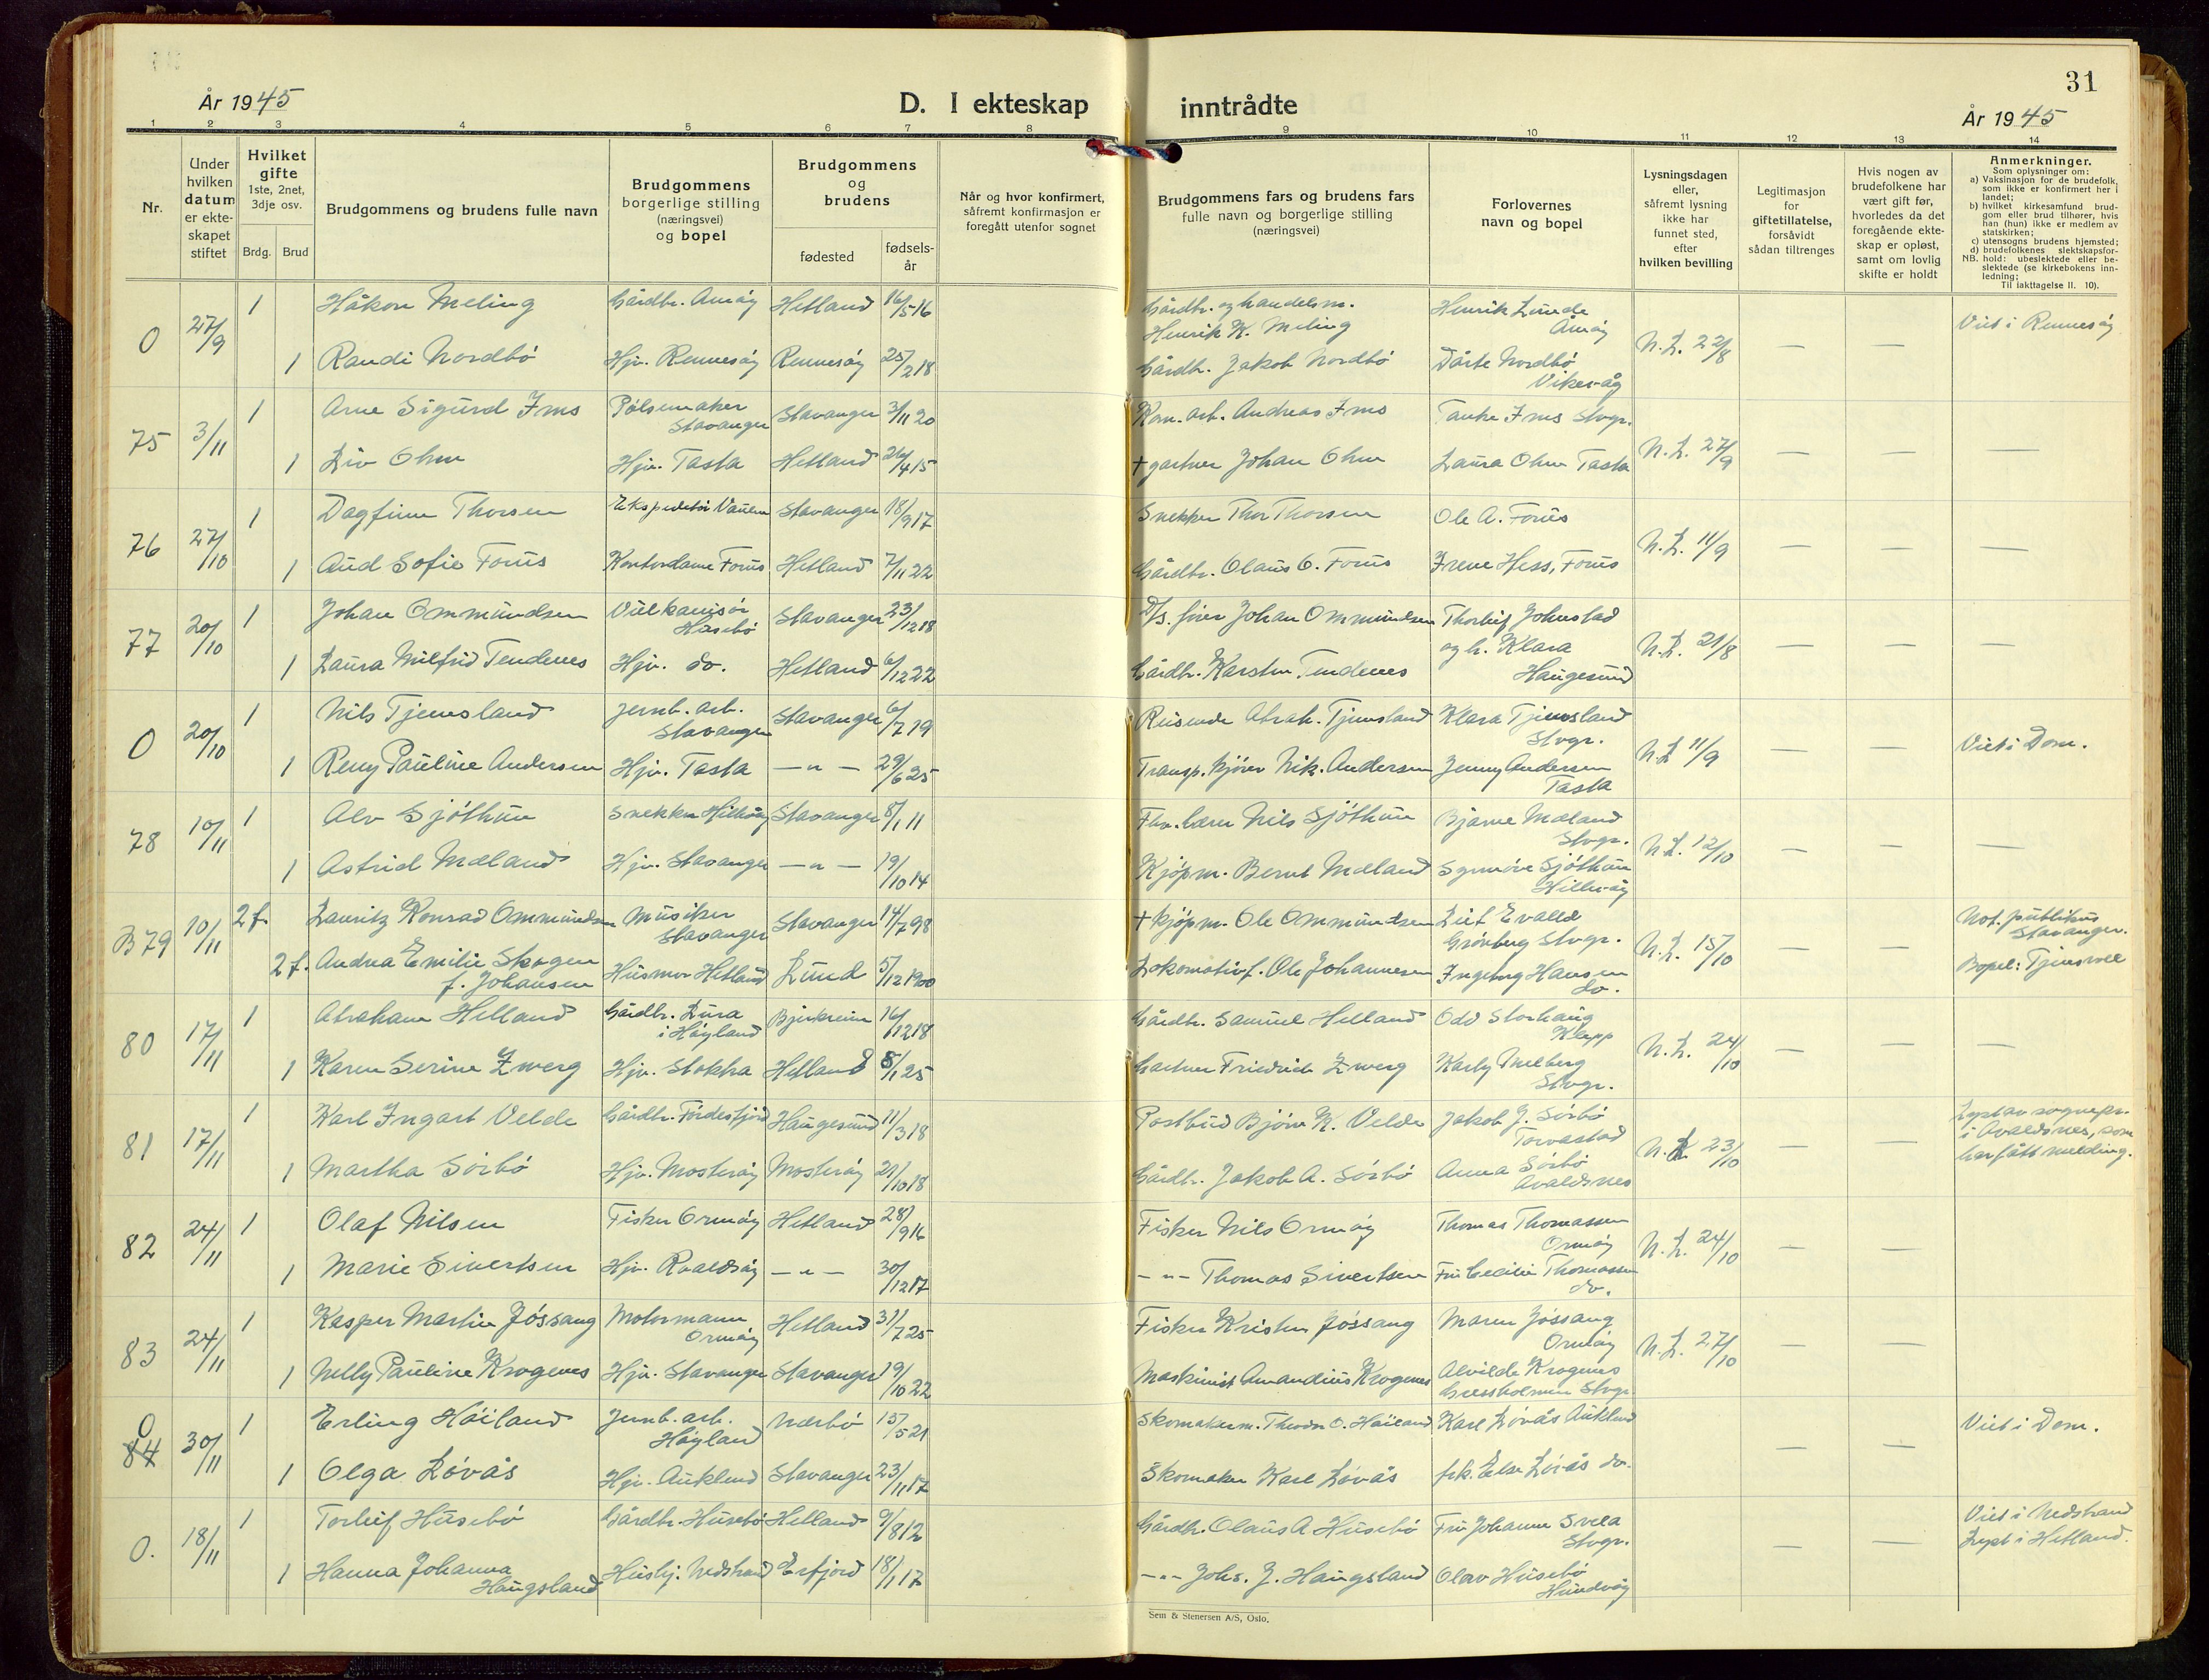 31
År 1945
D. I ekteskap inntrådte
År 1945
1 2 3 4 5 6 7 8 9 10 11 12 13 14
Nr.
Under hvilken datum er ekte-skapet stiftet
Hvilket gifte 1ste, 2net, 3dje osv.
Brdg. Brud
Brudgommens og brudens fulle navn
Brudgommens borgerlige stilling (næringsvei) og bopel
Brudgommens og brudens
fødested
fødsels-år
Når og hvor konfirmert, såfremt konfirmasjon er foregått utenfor sognet
Brudgommens fars og brudens fars fulle navn og borgerlige stilling (næringsvei)
Forlovernes navn og bopel
Lysningsdagen eller, såfremt lysning ikke har funnet sted, efter hvilken bevilling
Legitimasjon for giftetillatelse, forsåvidt sådan tiltrenges
Hvis nogen av brudefolkene har vært gift før, hvorledes da det foregående ekte-skap er opløst, samt om lovlig skifte er holdt
Anmerkninger.
Som oplysninger om:
a) Vaksinasjon for de brudefolk, som ikke er konfirmert her i landet;
b) hvilket kirkesamfund brud-gom eller brud tilhører, hvis han (hun) ikke er medlem av statskirken;
c) utensogns brudens hjemsted;
d) brudefolkenes slektskapsfor-hold: ubeslektede eller be-slektede (se kirkebokens inn-ledning;
NB.
Til iakttagelse II. 10).
0 27/9 1 Håkon Meling Gårdbr. Amøy Hetland 16/5 16 Gårdbr. og handelsm. Henrik K. Meling Henrik Lunde Åmøy N.L. 22/8 — — Viet i Rennesøy
1 Randi Nordbö Hjv. Rennesöy Rennesöy 25/2 18 Gårdbr. Jakob Nordbö Dårte Nordbö Vikevåg
75 3/11 1 Arne Sigurd Ims Pölsemaker Stavanger Stavanger 3/11 20 Kom. arb. Andreas Ims Ims Stvgr. N.L. 27/9 — — —
1 Liv Ohm Hjv. Tasta Hetland 26/4 15 + gartner Johan Ohm Laura Ohm Tasta
76 27/10 1 Dagfinn Thorsen Ekspeditör Vaulen Stavanger 18/9 17 Snekker Thor Thorsen Ole A. Forus N.L. 11/9 — — —
1 Aud Sofie Forus Kontordame Forus Hetland 7/11 22 Gårdbr. Olaus O. Forus Irene Hess, Forus
77 20/10 1 Johan Ommundsen Vulkanisör Husebö Stavanger 23/12 18 D/s. förer Johan Ommundsen Thorleif Johnstad N.L. 21/8 — — —
1 Laura Milfrid Tendenes Hjv. do. Hetland 6/12 22 Gårdbr. Karsten Tendenes og h. Klara Haugesund
0 20/10 1 Nils Tjemsland Jernb. arb. Stavanger Stavanger 6/7 19 Reisende Abrah. Tjemsland Klara Tjemsland Stvgr. N.L. 11/9 — — Viet i Dom.
1 Reny Pauline Andersen Hjv. Tasta — " — 29/6 25 Transp. kjörer Nik. Andersen Jenny Andersen Tasta
78 10/11 1 Alv Sjöthun Snekker Hillevåg Stavanger 8/1 11 Fhv. lærer Nils Sjöthun Bjarne Mæland Stvgr. N.L. 12/10 — — —
1 Astrid Mæland Hjv. Stavanger — " — 19/10 14 Kjöpm. Bernt Mæland Synnöve Sjöthun Hillevåg
B 79 10/11 2 f. Lauritz Konrad Ommundsen Musiker Stavanger Stavanger 14/7 98 + kjöpm. Ole Ommundsen Leif Evald Grönberg Stvgr. N.L. 15/10 Not. publikus Stavanger.
2 f. Andrea Emilie Skogen f. Johansen Husmor Hetland Lund 5/12 1900 Lokomotivf. Ole Johannesen Ingeborg Hansen do. Bopel: Tjensvoll
80 17/11 1 Abraham Helland Gårdbr. Lura i Höyland Bjerkreim 16/12 18 Gårdbr. Samuel Helland Odd Storhaug Klepp N.L. 24/10 — — —
1 Karen Serine Zwerg Hjv. Stokka Hetland 5/1 25 Gartner Friedrich Zwerg Karly Melberg Stvgr.
81 17/11 1 Karl Ingart Velde Gårdbr. Fördesfjord Haugesund 11/3 18 Postbud Björn K. Velde Jakob J. Sörbö Torvastad N.L. 23/10 — — Lyst av sognepr. i Avaldsnes, som har fått melding.
1 Martha Sörbö Hjv. Mosteröy Mosteröy 21/10 18 Gårdbr. Jakob A. Sörbö Anna Sörbö Avaldsnes
82 24/11 1 Olaf Nilsen Fisker Ormöy Hetland 28/9 16 Fisker Nils Ormöy Thomas Thomassen Ormöy N.L. 24/10 — —
1 Marie Sivertsen Hjv. Roaldsöy — " — 30/12 17 — " — Thomas Sivertsen Fru Cecilie Thomassen do.
83 24/11 1 Kasper Martin Jössang Motormann Ormöy Hetland 31/7 25 Fisker Kristen Jössang Maren Jössang Ormöy N.L. 27/10 — —
1 Nelly Pauline Krogenes Hjv. Stavanger Stavanger 19/10 22 Maskinist Amandius Krogenes Alvilde Krogenes Gressholmen Stvgr.
0 84 30/11 1 Erling Höiland Jernb. arb. Höyland Nærbö 15/5 21 Skomakerm. Theodor O. Höiland Karl Lövås Auklend — — Viet i Dom.
1 Olga Lövås Hjv. Auklend Stavanger 23/11 17 Skomaker Karl Lövås frk. Else Lövås do.
0. 18/11 1 Torleif Husebö Gårdbr. Husebö Hetland 9/8 12 Gårdbr. Olaus A Husebö Fru Johanne Svela Stvgr. — — Viet i Nedstrand Lyst i Hetland.
1 Hanna Johanna Haugsland Hushj. Nedstrand Erfjord 18/1 17 — " — Johs. J. Haugsland Olav Husebö Hundvåg
Sem & Stenersen A/S, Oslo.